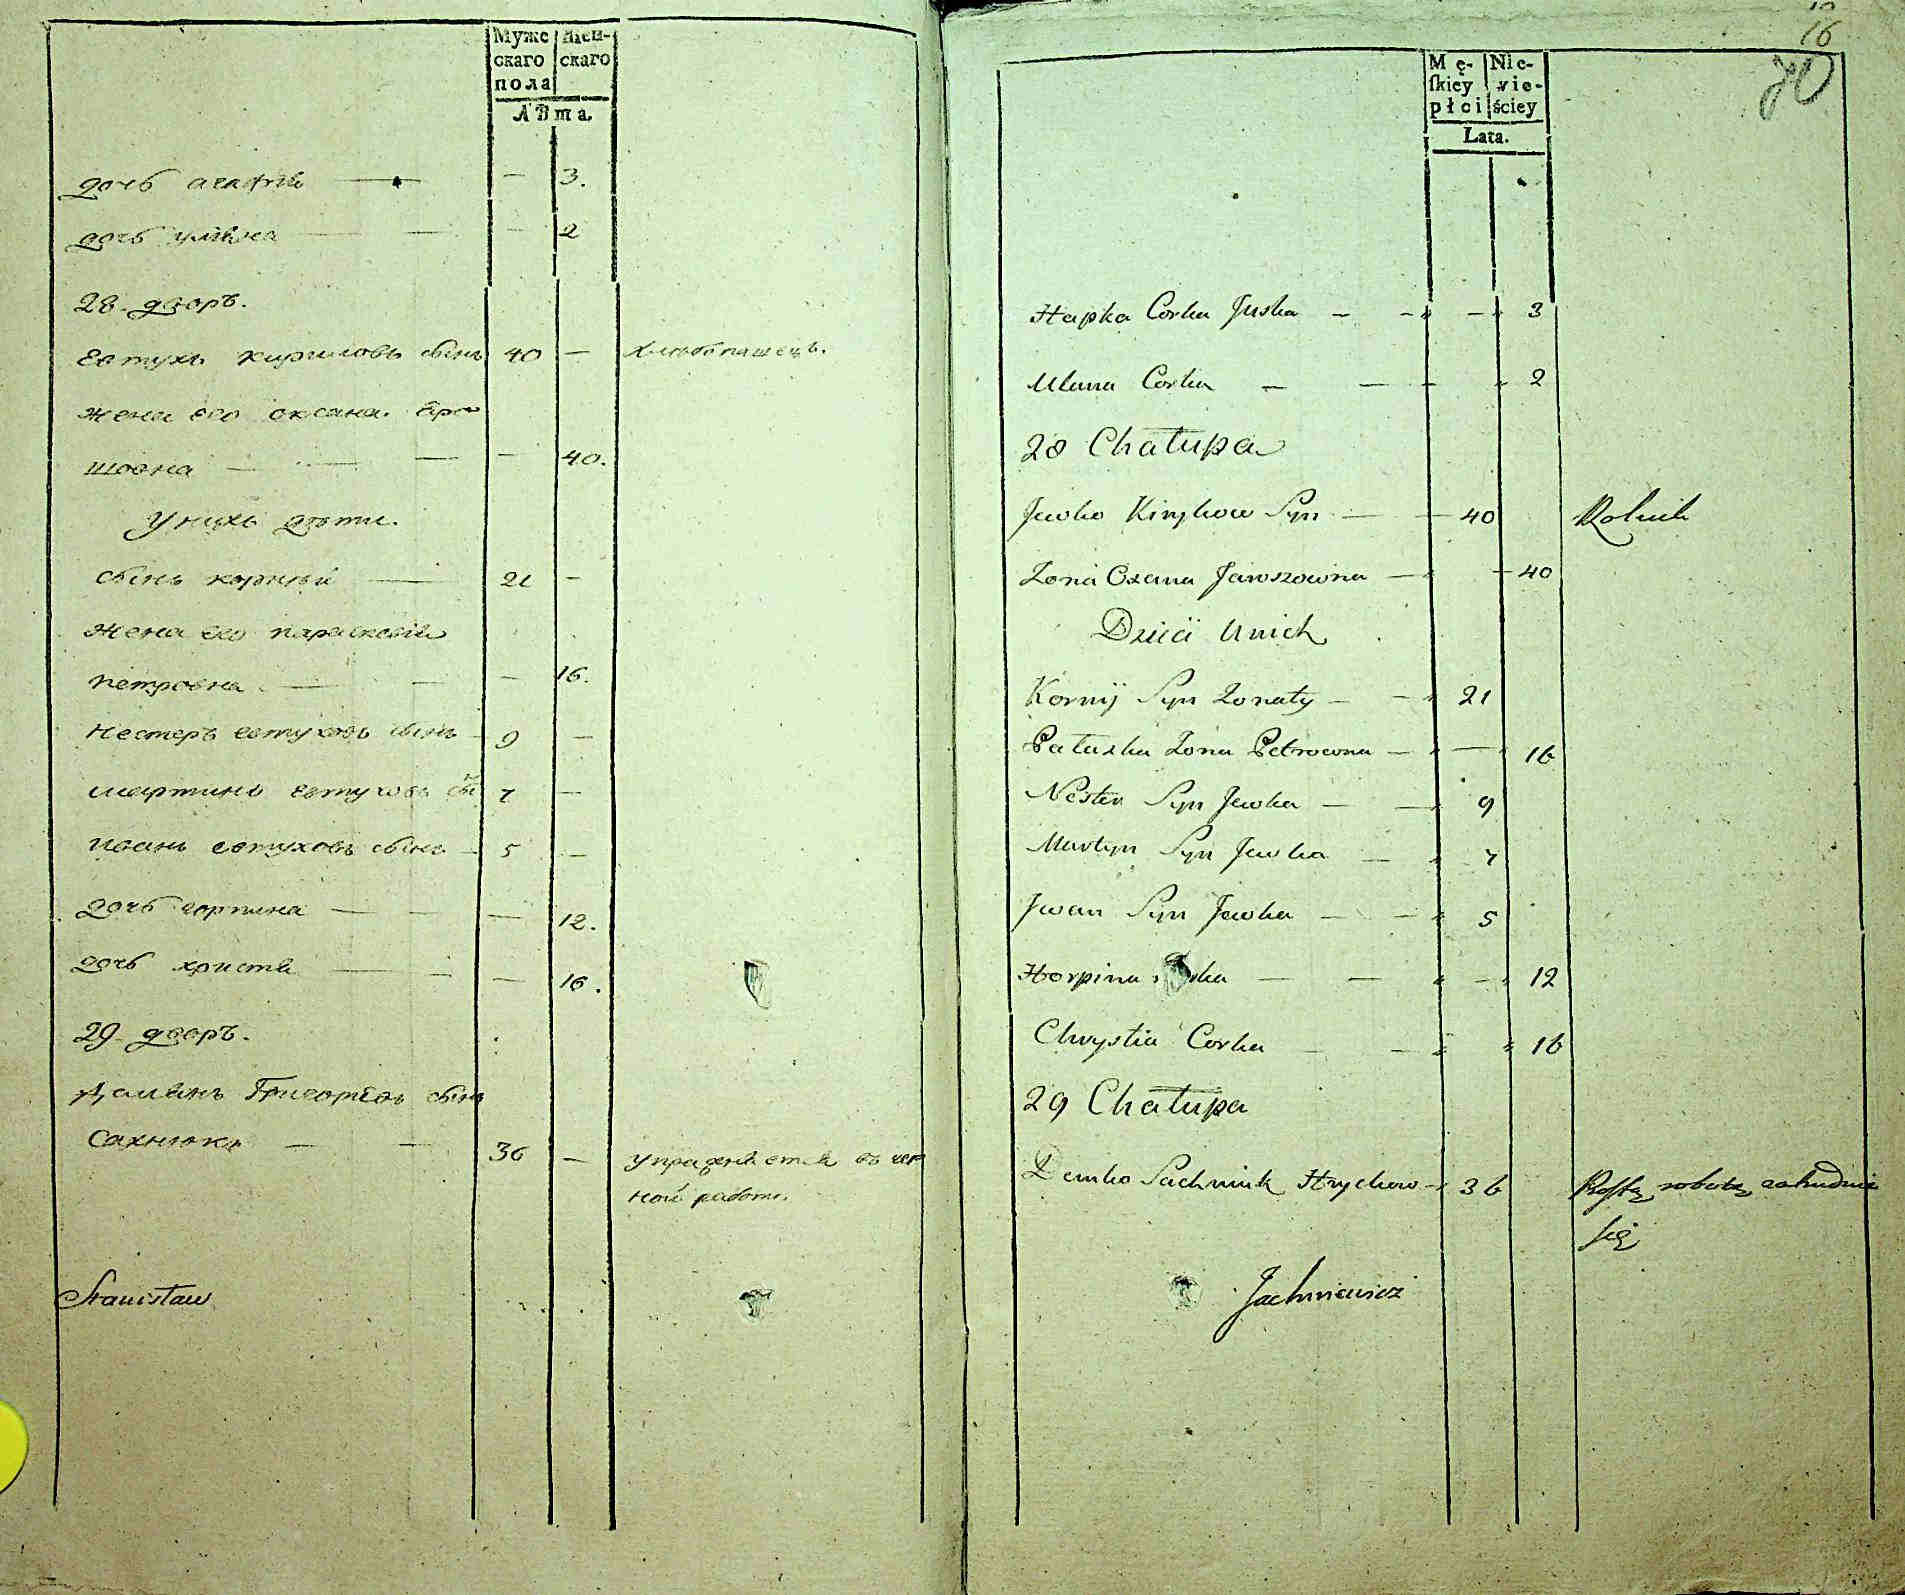 Муже
скаго
пола
Жен-
скаго
Лѣта.
дочь агафiя — — 3.
дочь улiяна — — 2
28 дворъ.
Евтухъ кириловъ сынъ 40 — хлѣбопашецъ.
жена его оксана. Яро
шовна — — 40.
у нихъ дѣти.
сынъ корнѣй — 21 —
жена его параскевiя
петровна — — 16.
нестеръ евтуховъ сынъ — 9 —
мартинъ евтуховъ сы 7 —
иванъ евтуховъ сынъ — 5 —
дочь горпина — — 12.
дочь христя — — 16.
29 дворъ.
Демянъ Григорѣевъ сынъ
Сахнюкъ — — 36 — упражняется въ чер
ной работѣ.
Stanisław
16
70
Mę-
skiey
płci
Nie-
wie-
ściey
Lata.
Hapka Corka Juska — — 3
Ulana Corka — — 2
28 Chałupa
Jewko Kirykow Syn — — 40 Rolnik
Zona Oxana Jaroszowna — — 40
Dzieci Unich
Kornij Syn Zonaty — — 21
Pałaszka Zona Petrowna — — 16
Nester Syn Jewka — — 9
Martyn Syn Jewka — 7
Jwan Syn Jewka — — 5
Horpina — — 12
Chrystia Corka — — 16
29 Chałupa
Demko Sachniuk Hrychow — 36 robotą zatrudnia
się
Jachniewicz